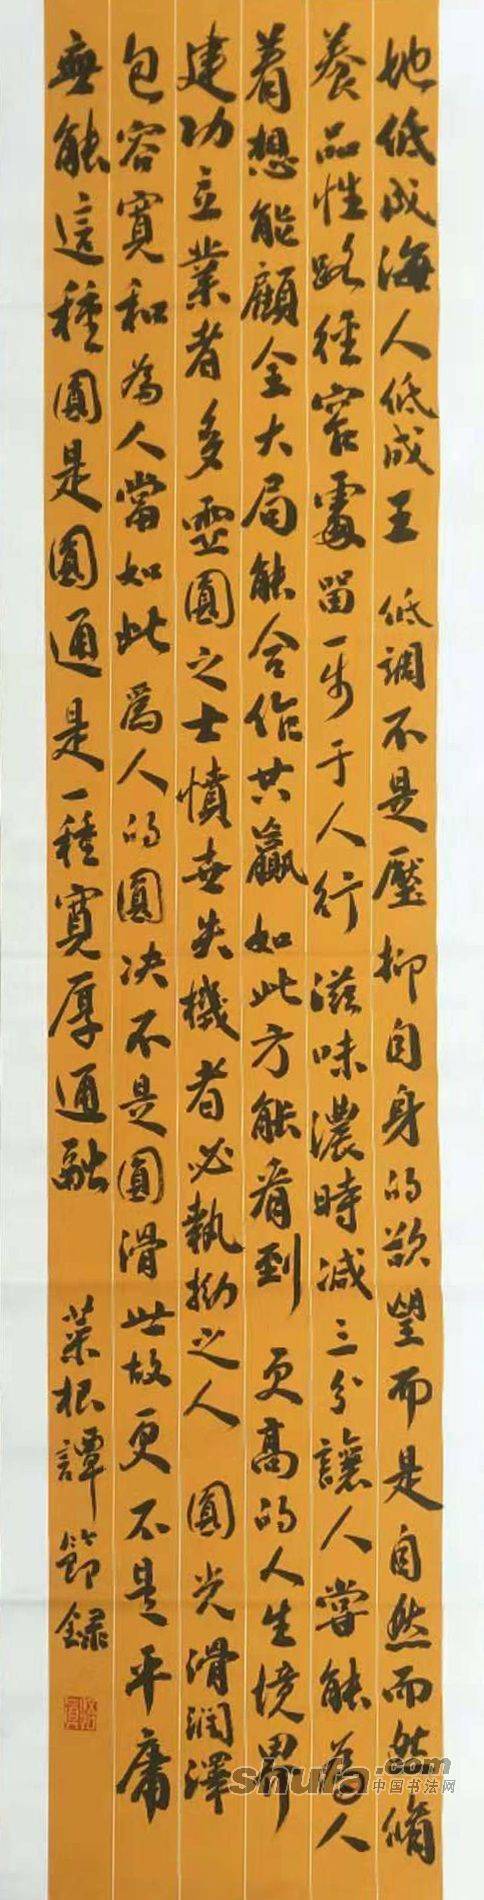 地低成海人低成王 低調不是壓抑自身的欲望而是自然而然脩
養品性路徑窄處留一步于人行 滋味濃時減三分讓人嘗能為人
着想能顧全大局能合作共贏如此方能看到 更高的人生境界
建功立業者多虛圓之士憤世失機者必執拗之人 圓光滑潤澤
包容寬和為人當如此為人的圓決不是圓滑世故更不是平庸
無能這種圓是圓通是一種寬厚通融 菜根譚節錄
shufa.com
中国书法网